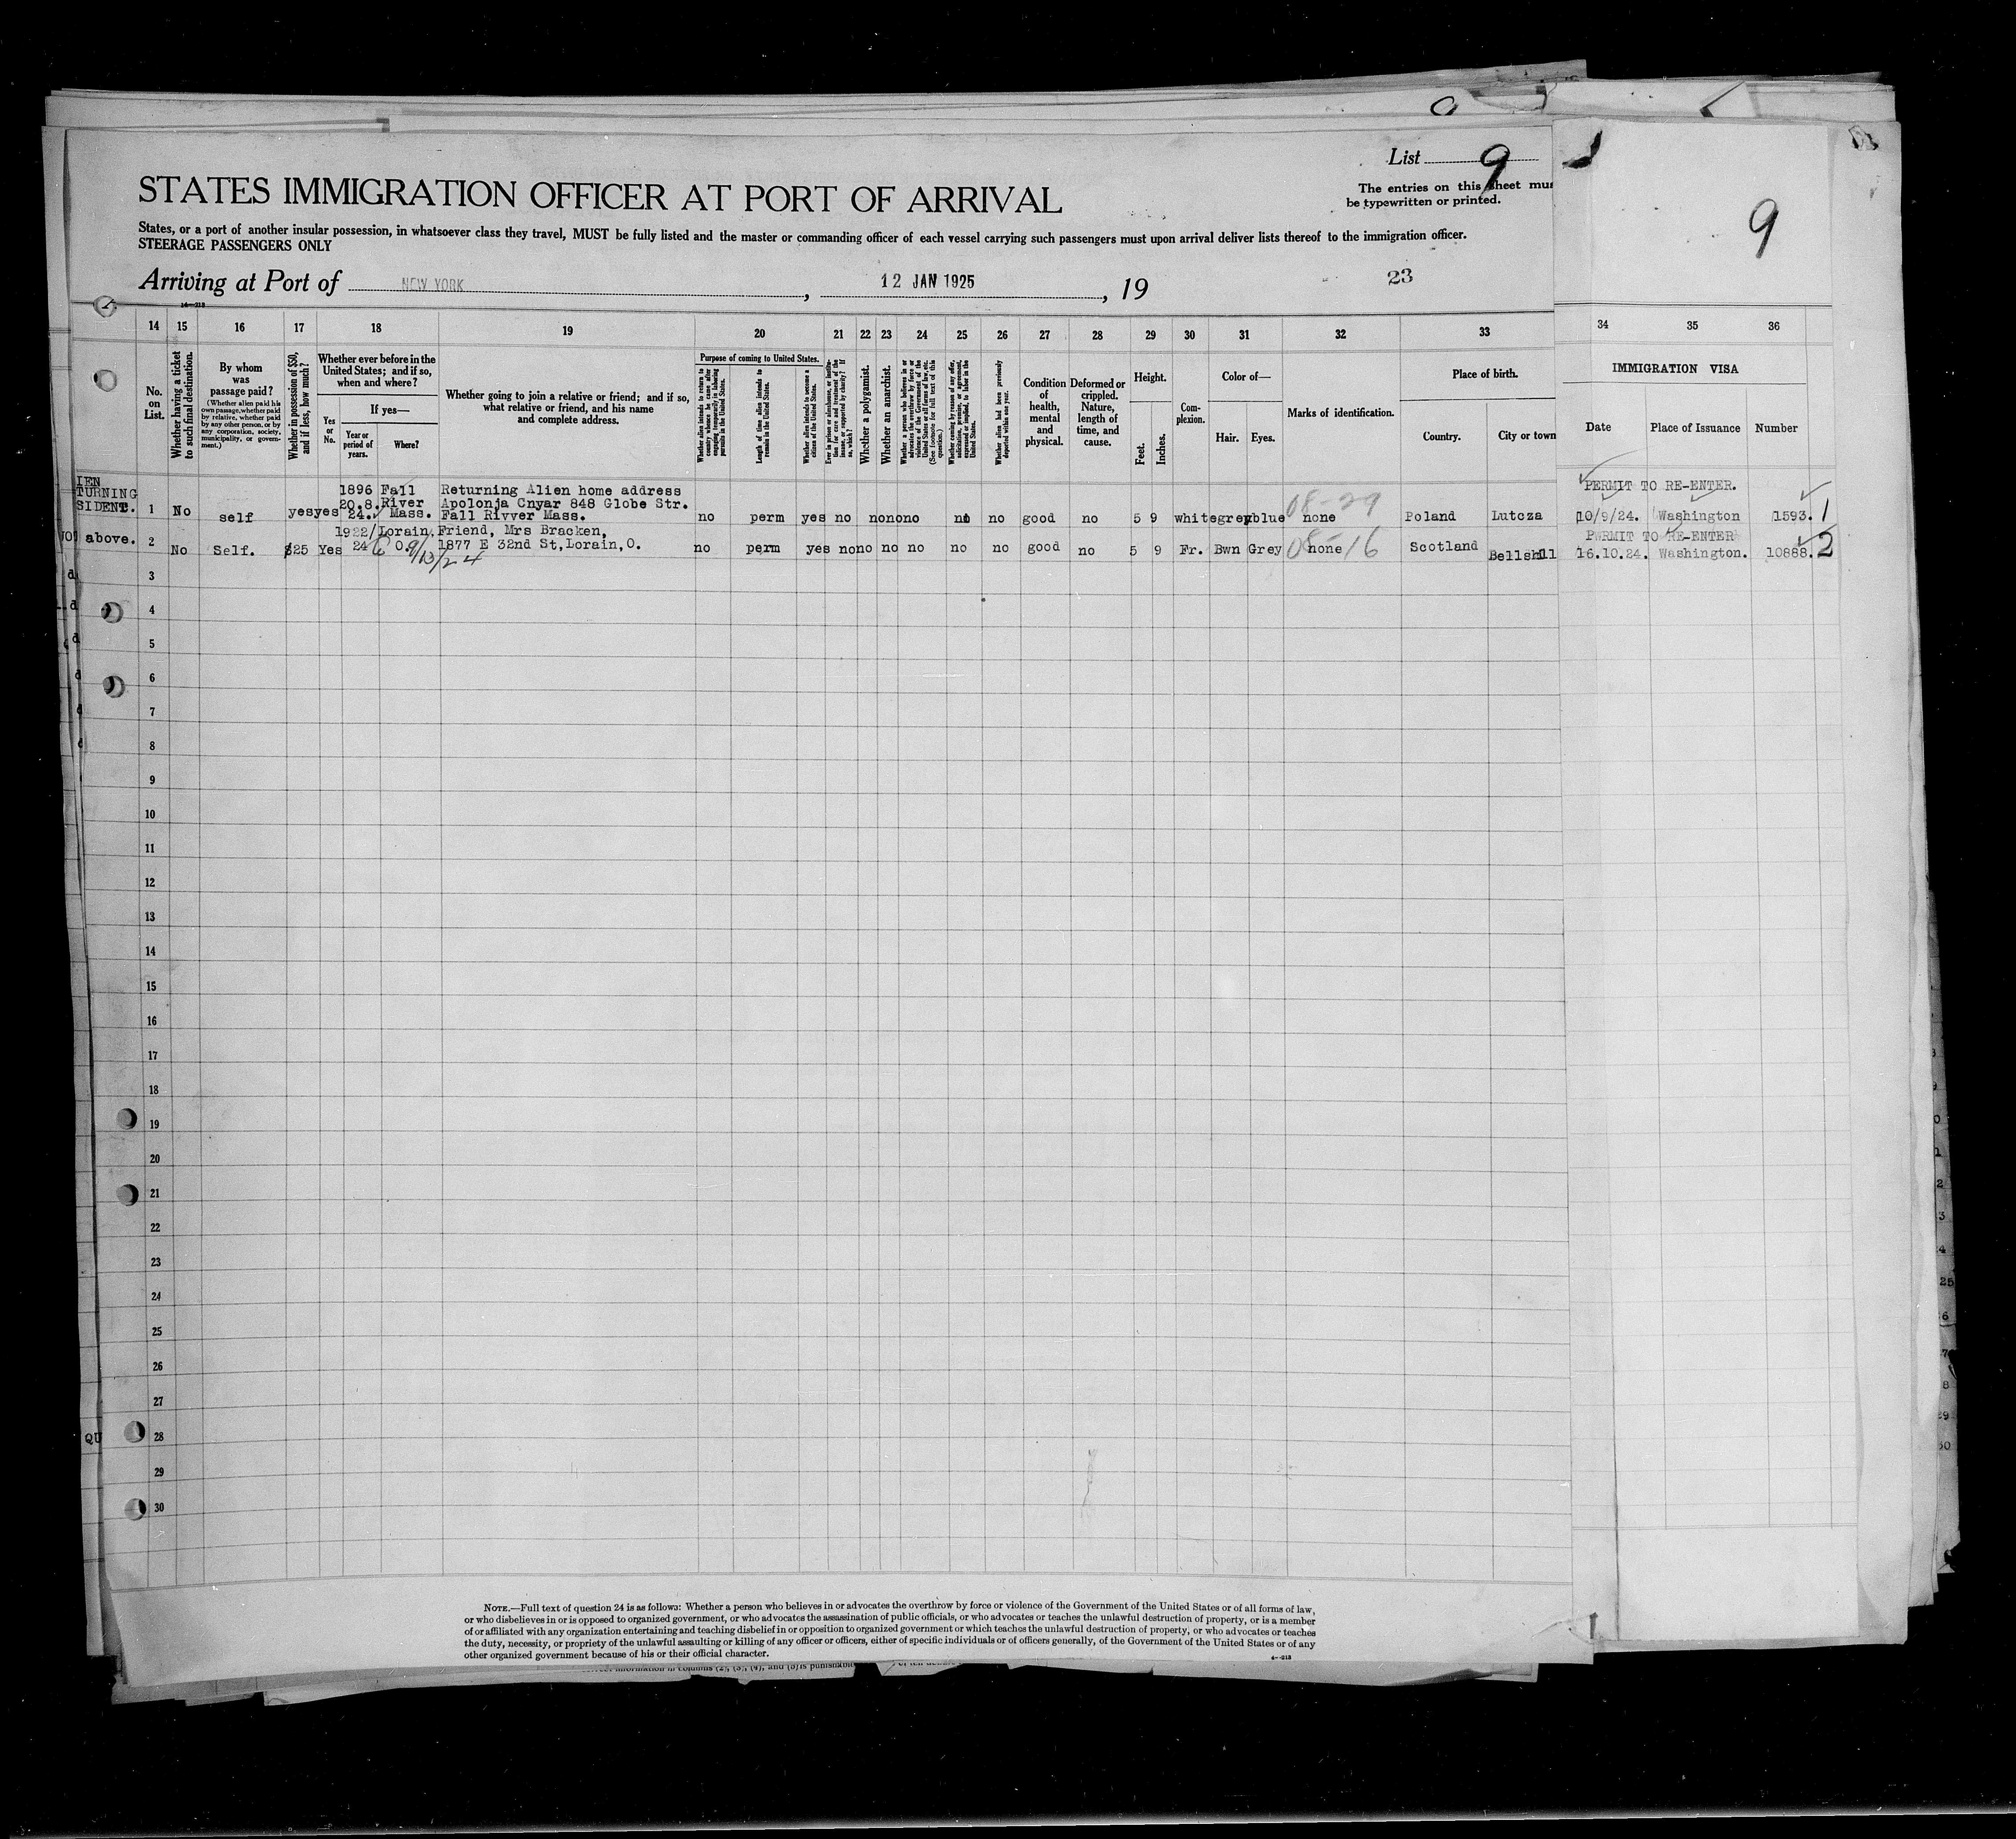 List 9
The entries on this sheet mus
be typewritten or printed.
9
STATES IMMIGRATION OFFICER AT PORT OF ARRIVAL
States, or a port of another insular possession, in whatsoever class they travel, MUST be fully listed and the master or commanding officer of each vessel carrying such passengers must upon arrival deliver lists thereof to the immigration officer.
STEERAGE PASSENGERS ONLY
Arriving at Port of NEW YORK, 12 JAN 1925, 19 23
14 15 16 17 18 19 20 21 22 23 24 25 26 27 28 29 30 31 32 33 34 35 36
No. on List.
Whether having a ticket to such final destination.
By whom was passage paid?
(Whether alien paid his own passage, whether paid by relative, whether paid by any other person, or by any corporation, society, municipality, or government.)
Whether in possession of $50, and if less, how much?
Whether ever before in the United States; and if so, when and where?
Yes or No.
If yes—
Year or period of years.
Where?
Whether going to join a relative or friend; and if so, what relative or friend, and his name and complete address.
Purpose of coming to United States.
Whether alien intends to return to country whence he came after engaging temporarily in laboring pursuits in the United States.
Length of time alien intends to remain in the United States.
Whether alien intends to become a citizen of the United States.
Ever in prison or almshouse, or institution for care and treatment of the insane, or supported by charity? If so, which?
Whether a polygamist.
Whether an anarchist.
Whether a person who believes in or advocates the overthrow by force or violence of the Government of the United States or all forms of law, etc. (See footnote for full text of this question.)
Whether coming by reason of any offer, solicitation, promise, or agreement, expressed or implied, to labor in the United States.
Whether alien had been previously deported within one year.
Condition of health, mental and physical.
Deformed or crippled. Nature, length of time, and cause.
Height.
Feet. Inches.
Com-plexion.
Color of—
Hair. Eyes.
Marks of identification.
Place of birth.
Country. City or town
IMMIGRATION VISA
Date Place of Issuance Number
IEN
TURNING
SIDENT. 1 No self yes yes 1896 20.8.24. Fall River Mass. Returning Alien home address
Apolonja Cnyar 848 Globe Str.
Fall Rivver Mass. no perm yes no no no no no no good no 5 9 white grey blue 08-29 none Poland Lutcza PERMIT TO RE-ENTER. 10/9/24. Washington 1593. 1
above. 2 No Self. $25 Yes 1922/24 Lorain, O. 9/13/24 Friend, Mrs Bracken,
1877 E 32nd St, Lorain, O. no perm yes no no no no no no good no 5 9 Fr. Bwn Grey 08-16 none Scotland Bellshill PWRMIT TO RE-ENTER 16.10.24. Washington. 10888. 2
3
4
5
6
7
8
9
10
11
12
13
14
15
16
17
18
19
20
21
22
23
24
25
26
27
QU 28
29
30
NOTE.—Full text of question 24 is as follows: Whether a person who believes in or advocates the overthrow by force or violence of the Government of the United States or of all forms of law,
or who disbelieves in or is opposed to organized government, or who advocates the assassination of public officials, or who advocates or teaches the unlawful destruction of property, or is a member
of or affiliated with any organization entertaining and teaching disbelief in or opposition to organized government or which teaches the unlawful destruction of property, or who advocates or teaches
the duty, necessity, or propriety of the unlawful assaulting or killing of any officer or officers, either of specific individuals or of officers generally, of the Government of the United States or of any
other organized government because of his or their official character.